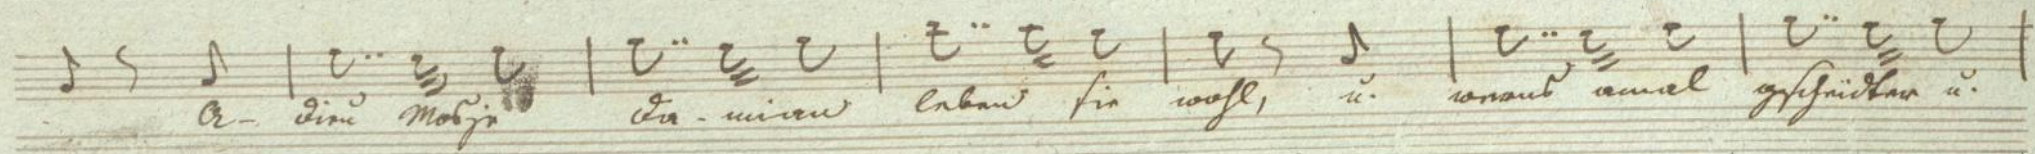 A- dieu Mosje Da- mian leben sie wohl, u. wenns amal gscheidter u.